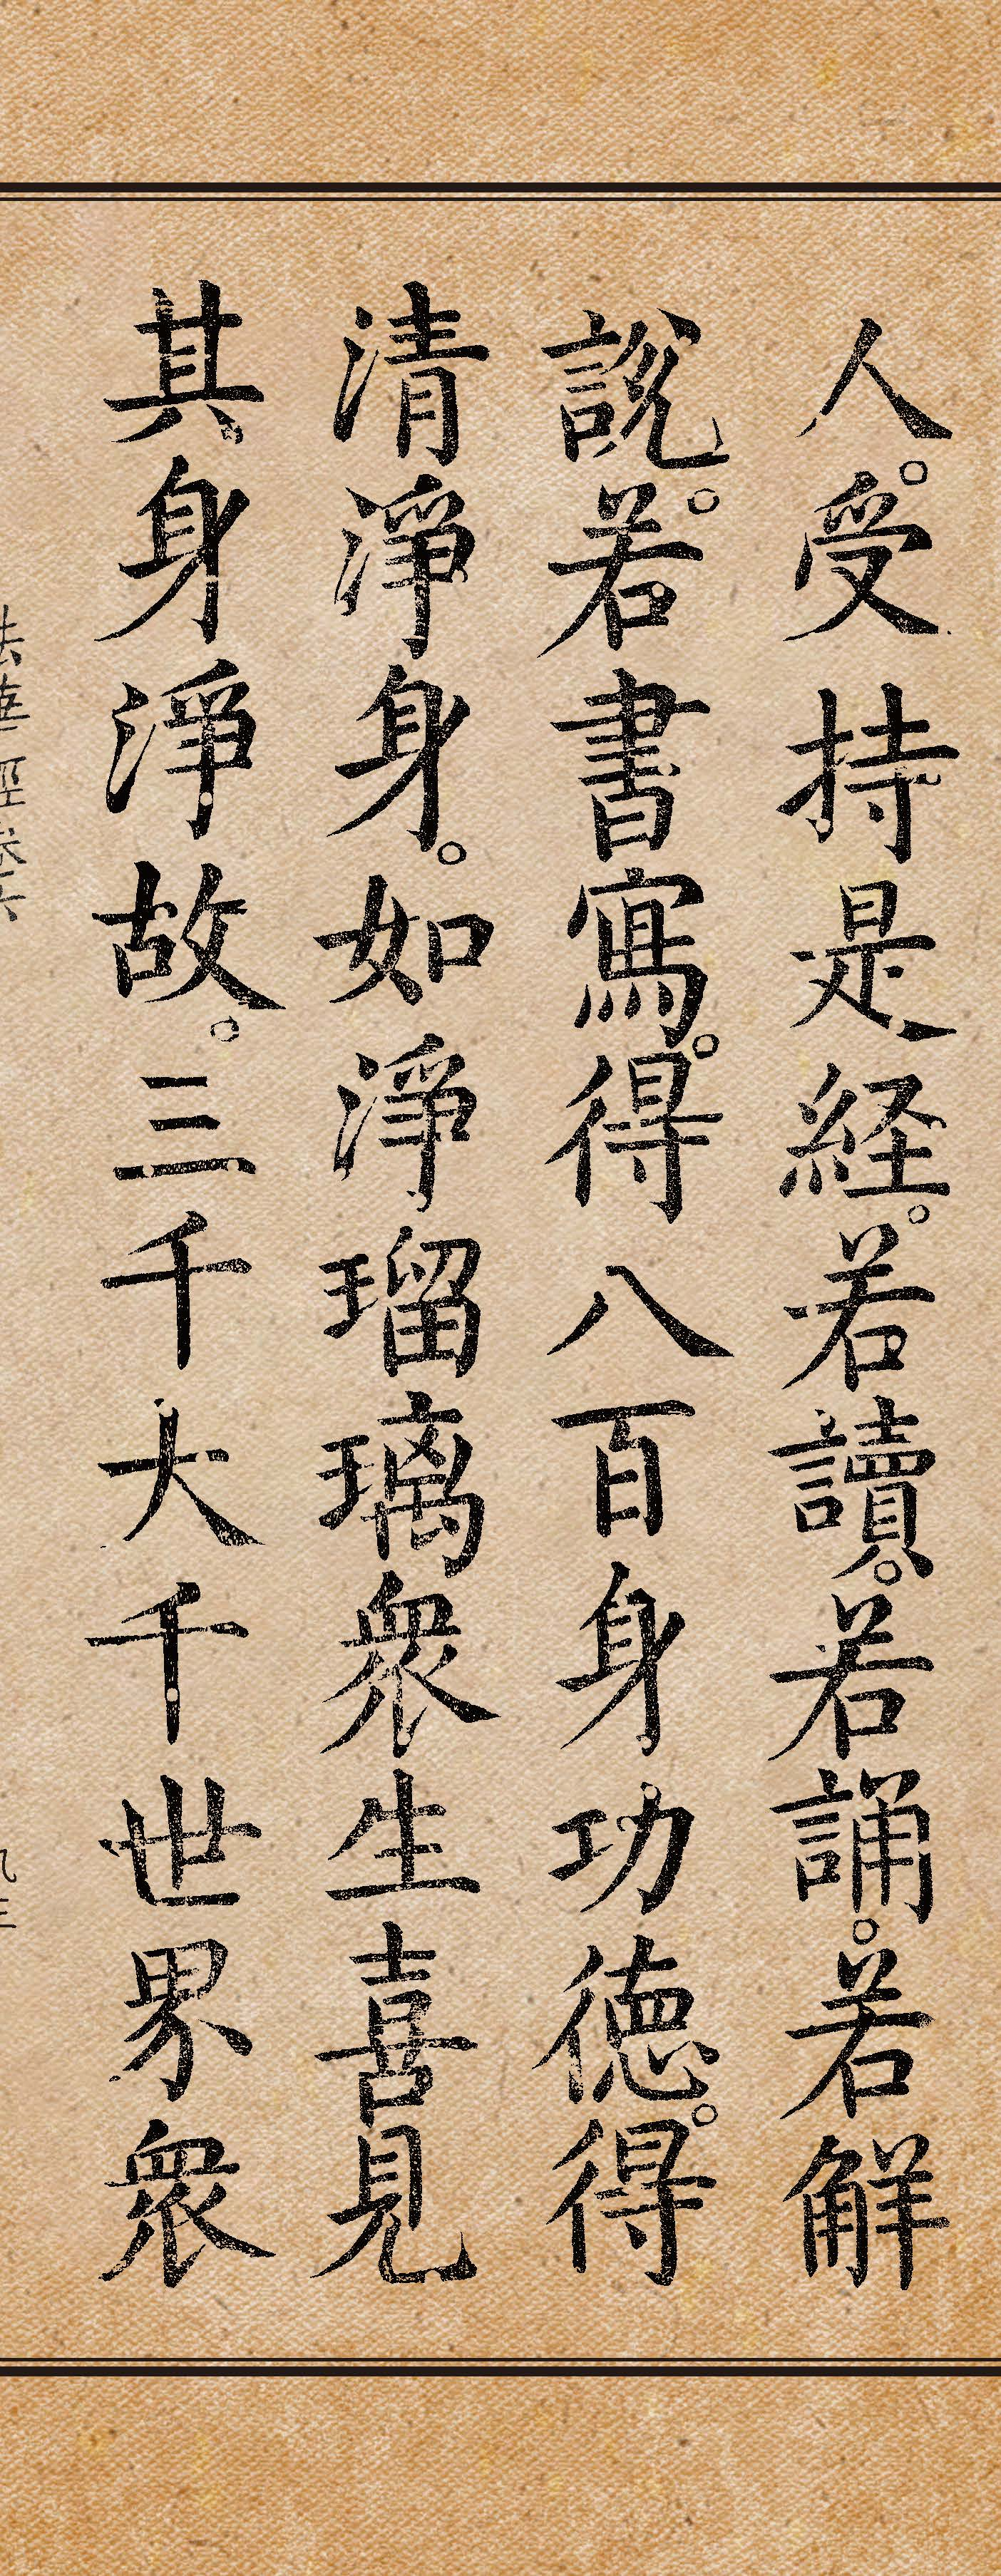 人。受持是経。若讀。若誦。若解
說。若書寫。得八百身功徳。得
清淨身。如淨瑠璃衆生喜見
其身淨故。三千大千世界衆
法華經卷六